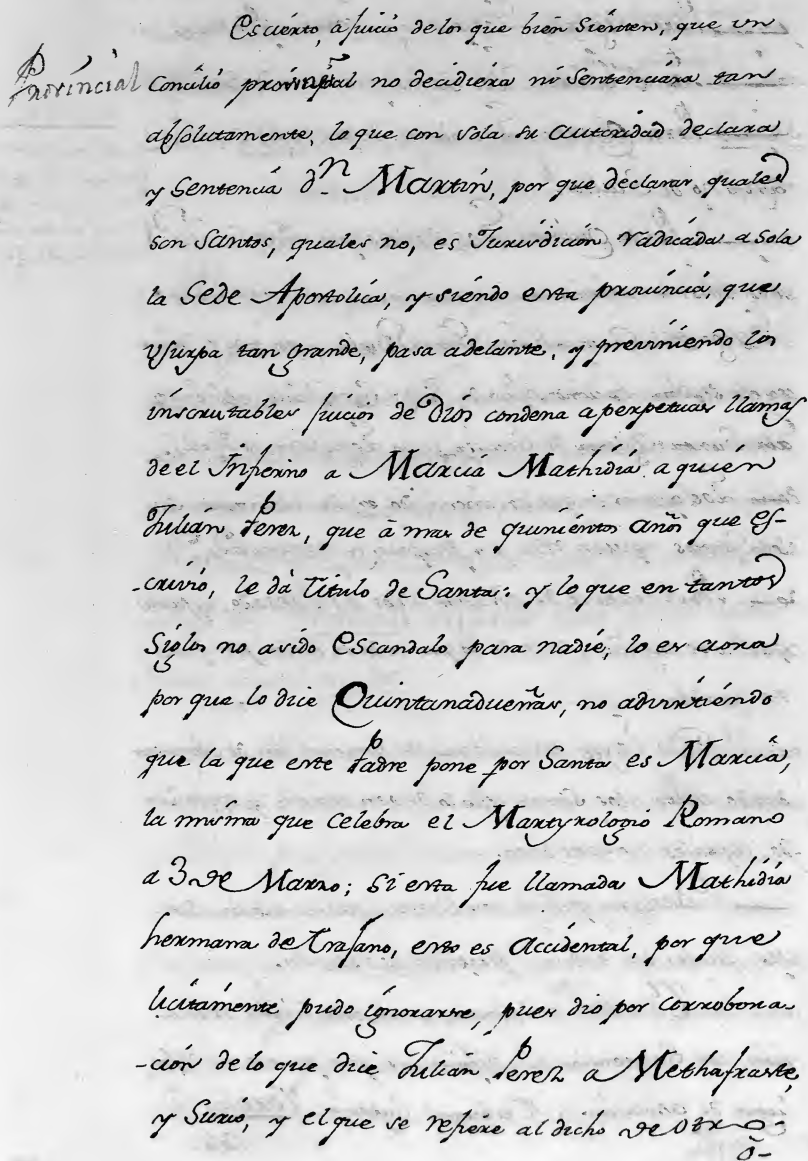 Es cierto, a juicio de los que bien sienten, que vn
Provincial
Concilio provincial no decidiera ni Sentenciara tan
absolutamente, lo que con sola su autoridad declara
y Sentencia dn. Martin, por que declarar quales
son Santos, quales no, es Jurisdición radicada a sola
la Sede Apostolica, y siendo esta provincia, que
vsurpa tan grande, pasa adelante, y previniendo los
inscrutables juicios de Dios condena a perpetuas llamas
de el Infierno a Marcia Mathidia a quién
Julián Perez, que â mas de quinientos años que es-
-crivio, le dà titulo de Santa: y lo que en tantos
Siglos no a sido Escandalo para nadie, lo es aora
por que lo dice Quintanadueñas, no advirtiéndo
que la que este Padre pone por Santa es Marcia,
la misma que Celebra el Martyrologio Romano
a 3 de Marzo; Si esta fue llamada Mathidia
hermana de Trajano, esto es Accidental, por que
licitamente pudo ignorarse, pues dio por corrobora-
-ción de lo que dice Julián Perez a Methafraste,
y Surio, y el que se refiere al dicho de otro